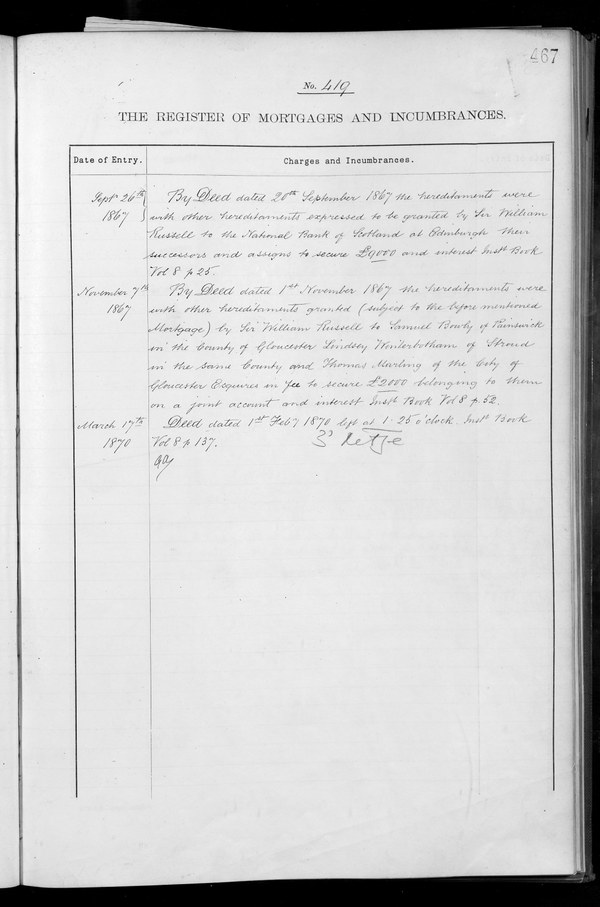 467
No. 419
THE REGISTER OF MORTGAGES AND INCUMBRANCES.
Date of Entry. Charges and Incumbrances.
Septr 26th 1867
By Deed dated 20th September 1867 the hereditaments were
with other hereditaments expressed to be granted by Sir William
Russell to the National Bank of Scotland at Edinburgh their
successors and assigns to secure £9000 and interest Instt Book
Vol 8 p 25.
November 7th 1867
By Deed dated 1st November 1867 the hereditaments were
with other hereditaments granted (subject to the before mentioned
Mortgage) by Sir William Russell to Samuel Bowly of Painswick
in the County of Gloucester Lindsey Winterbotham of Stroud
in the same County and Thomas Marling of the City of
Gloucester Esquires in fee to secure £2000 belonging to them
on a joint account and interest Instt Book Vol 8 p. 52.
March 17th 1870
Deed dated 1st Feby 1870 left at 1-25 o'clock. Instt Book
Vol 8 p 137.